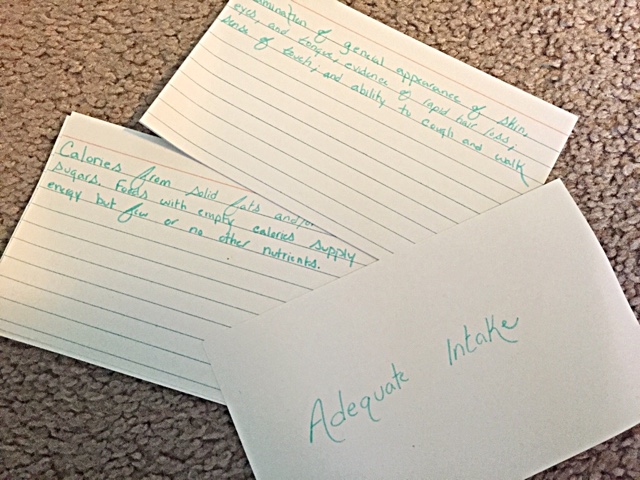 of general appearance of skin,
eyes, and tongue, evidence of rapid hair loss,
sense of touch, and ability to cough and walk
Calories from solid fats and/or
sugars. Foods with empty calories supply
energy but few or no other nutrients.
Adequate Intake